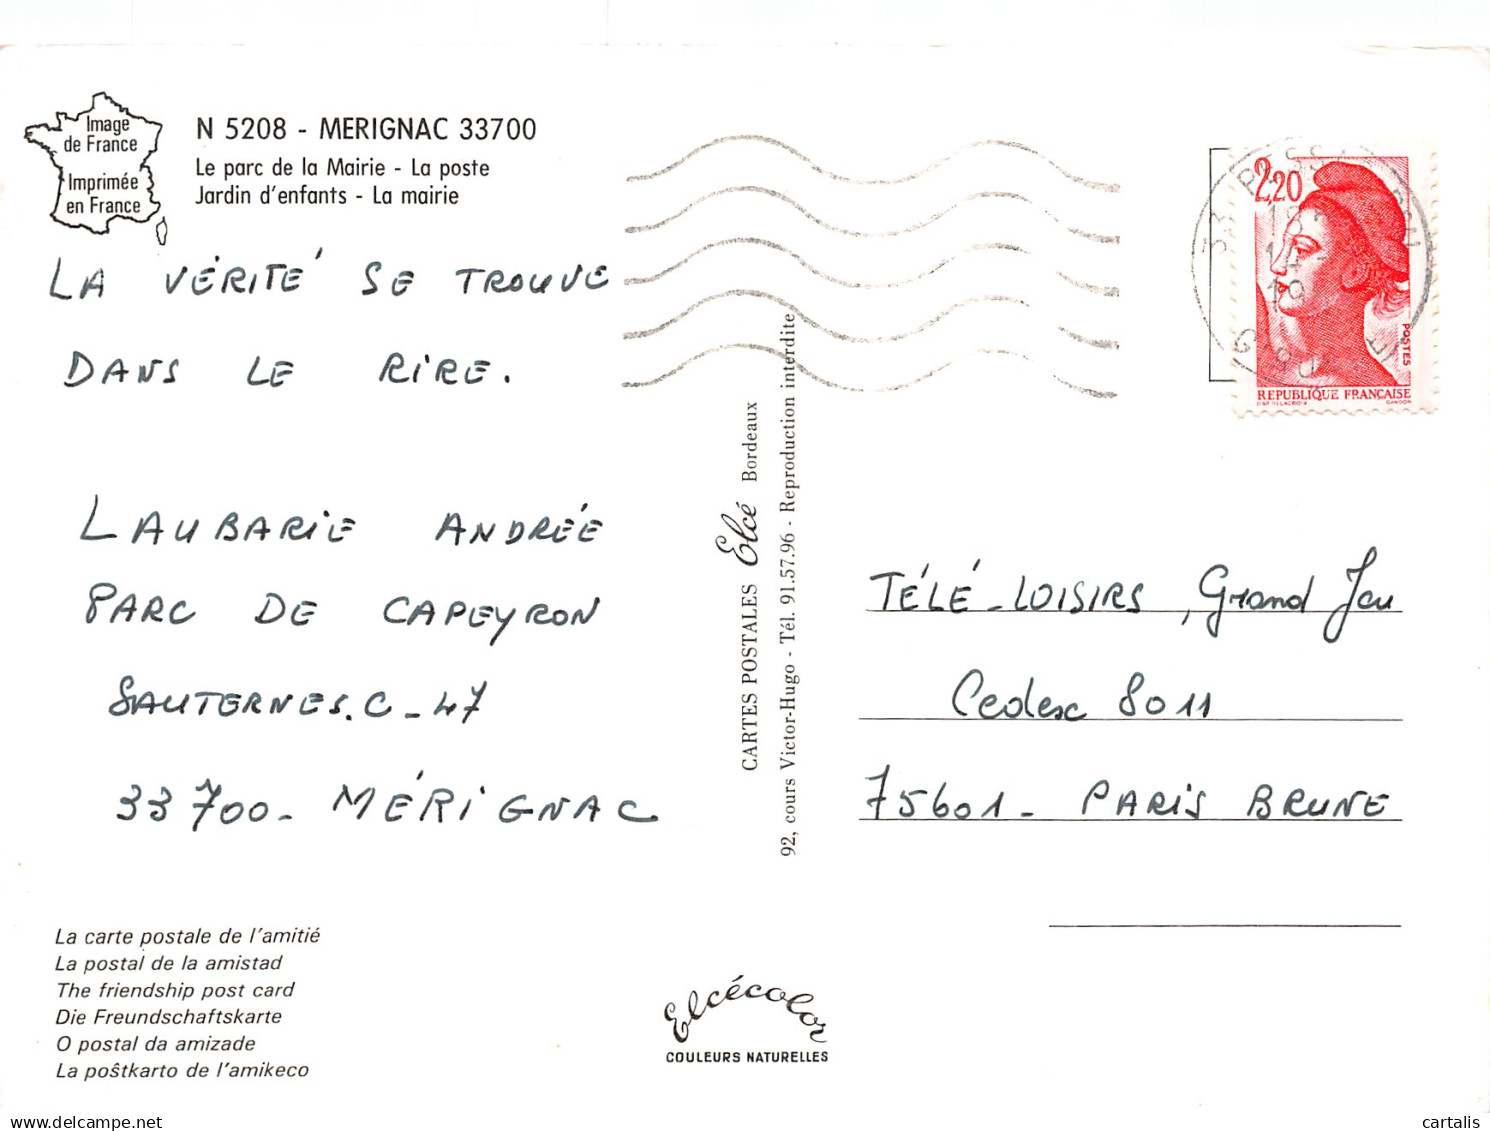 Image
de France
Imprimée
en France
N 5208 - MERIGNAC 33700
Le parc de la Mairie - La poste
Jardin d'enfants - La mairie
LA VÉRITÉ SE TROUVE
DANS LE RIRE.
LAUBARIE ANDRÉE
PARC DE CAPEYRON
SAUTERNES. C - 47
33700 - MÉRIGNAC
La carte postale de l'amitié
La postal de la amistad
The friendship post card
Die Freundschaftskarte
O postal da amizade
La poŝtkarto de l'amikeco
CARTES POSTALES Elcé Bordeaux
92, cours Victor-Hugo - Tél. 91.57.96 - Reproduction interdite
Elcécolor
COULEURS NATURELLES
2,20
POSTES
REPUBLIQUE FRANÇAISE
GANDON
33 PESSAC
TÉLÉ-LOISIRS, Grand Jeu
Cedex 8011
75601 - PARIS BRUNE
www.delcampe.net
cartalis